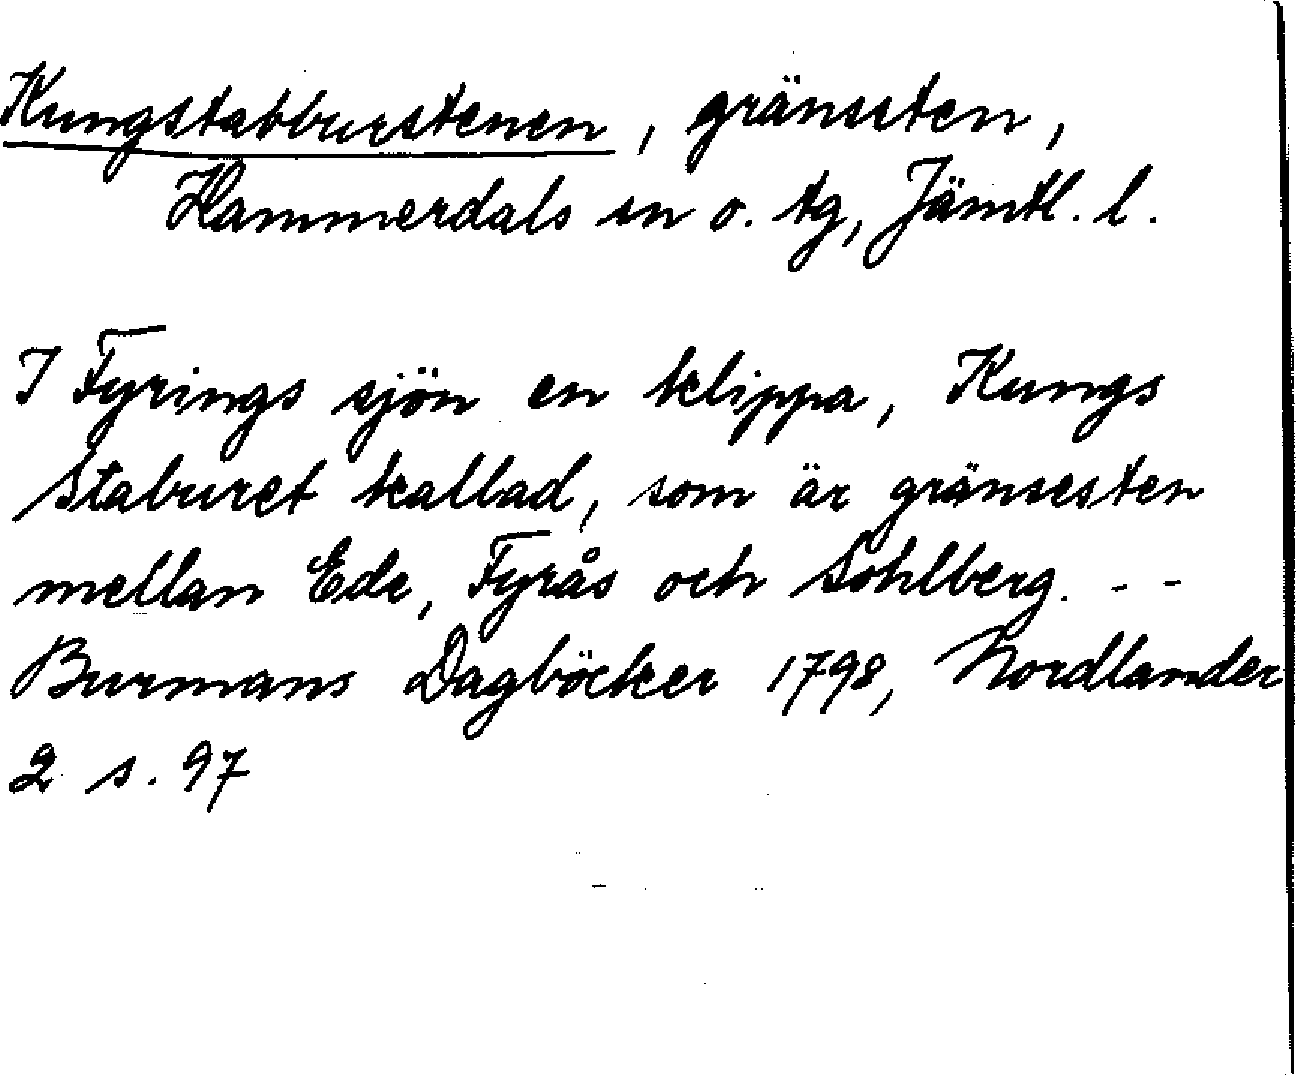 Kungstabburstenen, gränssten,
Hammerdals sn o. tg, Jämtl. l.
I Fyrings sjön en klippa, Kungs
Staburet kallad, som är gränsesten
mellan Ede, Fyrås och Sohlberg. - -
Burmans Dagböcker 1798, Nordlander
2 s. 97